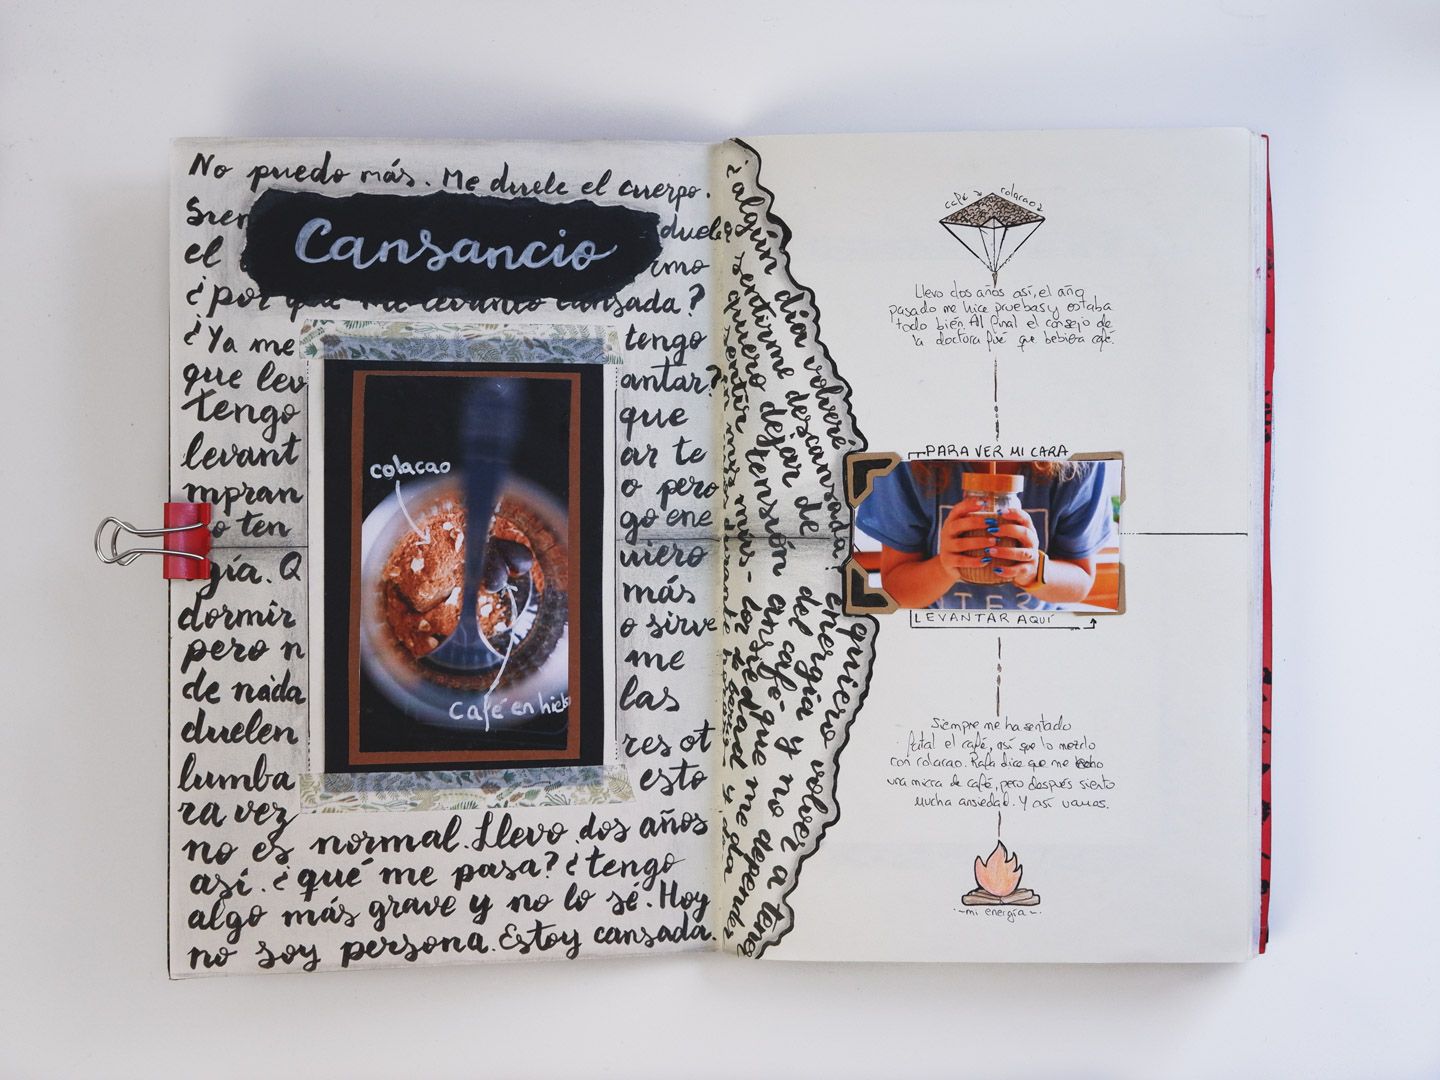 No puedo más. Me duele el cuerpo.
Siem
duele
Cansancio
el
rmo
¿por qué me levanto cansada?
¿Ya me
tengo
que lev
antar?
Tengo
que
levant
ar te
mpran
o pero
o ten
go ene
gía. Q
uiero
dormir
más
pero n
o sirve
de nada
me
duelen
las
lumba
res ot
ra vez
esto
no es normal. Llevo dos años
así. ¿qué me pasa? ¿tengo
algo más grave y no lo sé. Hoy
no soy persona. Estoy cansada.
colacao
café en hielo
¿algún día volveré
a sentirme descansada?
quiero volver a tener
energía y no depender
del café - que me da
quiero dejar de
sentir
tensión
ansiedad
café
colacao
Llevo dos años así, el año
pasado me hice pruebas y estaba
todo bién. Al final el consejo de
la doctora fué que bebiera café.
PARA VER MI CARA
LEVANTAR AQUÍ
Siempre me ha sentado
fatal el café, así que lo mezclo
con colacao. Rafa dice que me echo
una micra de café, pero después siento
mucha ansiedad. Y así vamos.
~mi energía~